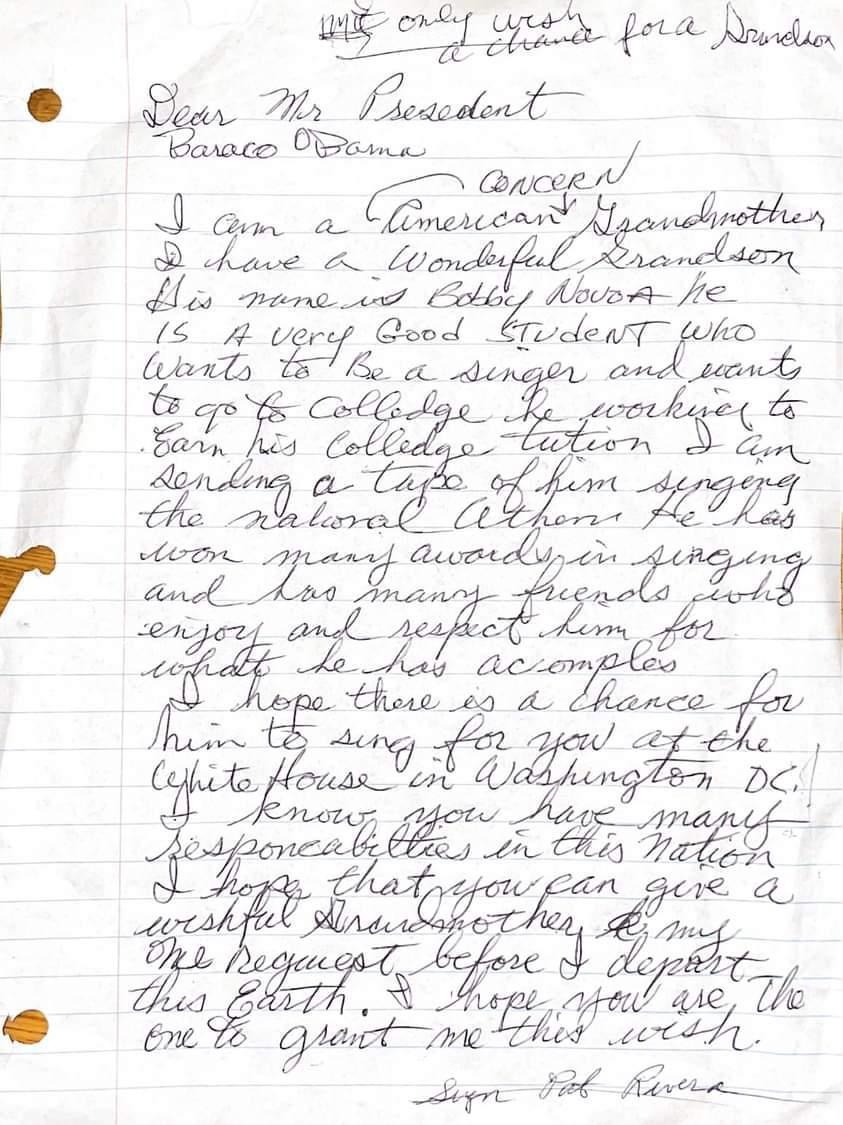 my only wish
a chance for a Grandson
Dear Mr Presedent
Baraco OBama
CONCERN
I am a American Grandmother
I have a Wonderful Grandson
His name is Bobby NovoA he
IS A very Good STUdeNT who
Wants to Be a singer and wants
to go to Colledge he working to
Earn his Colledge tution I am
sending a tape of him singing
the national Athem He has
won many awards in singing
and has many friends who
enjoy and respect him for
what he has acomples
I hope there is a chance for
him to sing for you at the
White House in Washington DC.
I know you have many
responcabilties in this Nation
I hope that you can give a
wishful Grandmother my
one request before I depart
this Earth. I hope you are The
one to grant me this wish.
Sign Pat Rivera